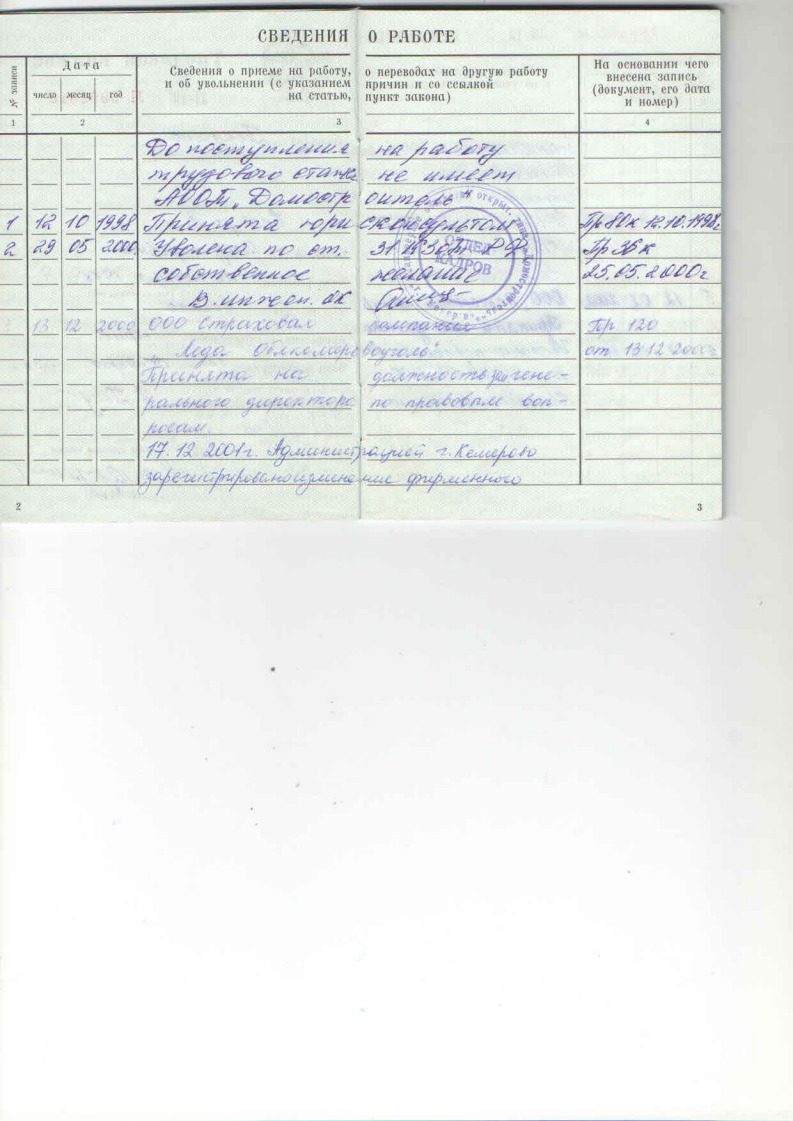 СВЕДЕНИЯ О РАБОТЕ
№ записи
Дата
число месяц год
Сведения о приеме на работу, о переводах на другую работу
и об увольнении (с указанием причин и со ссылкой
на статью, пункт закона)
На основании чего
внесена запись
(документ, его дата
и номер)
1 2 3 4
До поступления на работу
трудового стажа не имеет
АООТ „Домостроитель"
1 12 10 1998 Принята юрисконсультом Пр 80к 12.10.1998г
2 29 05 2000 Уволена по ст. 31 КЗоТ РФ Пр 36к
собственное желание 25.05.2000г
В. инжен. ОК
ОТДЕЛ
КАДРОВ
13 12 2000 ООО страховая компания Пр 120
от 13 12 2000
Принята на должность зам гене-
рального директора по правовым воп-
росам.
17.12.2001г. Администрацией г. Кемерово
зарегистрировано изменение фирменного
2 3